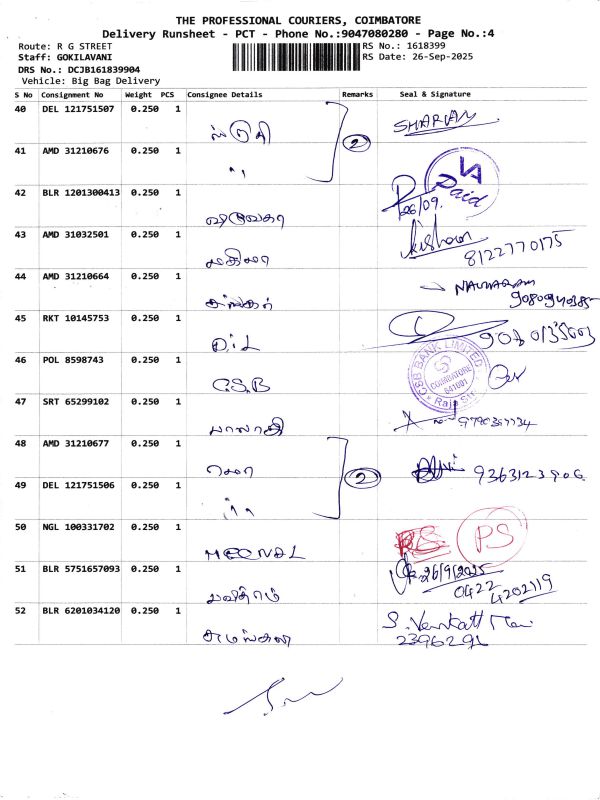 THE PROFESSIONAL COURIERS, COIMBATORE
Delivery Runsheet - PCT - Phone No.:9047080280 - Page No.:4
Route: R G STREET
RS No.: 1618399
Staff: GOKILAVANI
RS Date: 26-Sep-2025
DRS No.: DCJB161839904
Vehicle: Big Bag Delivery
S No Consignment No Weight PCS Consignee Details Remarks Seal & Signature
40 DEL 121751507 0.250 1
2 SHARVAN
41 AMD 31210676 0.250 1
" Paid
42 BLR 1201300413 0.250 1
26/09.
43 AMD 31032501 0.250 1
Kishor
8122770175
44 AMD 31210664 0.250 1
45 RKT 10145753 0.250 1
D.i.L
46 POL 8598743 0.250 1
C.S.B CSB BANK LIMITED COIMBATORE 641001
47 SRT 65299102 0.250 1
பாலாஜி
48 AMD 31210677 0.250 1
2
49 DEL 121751506 0.250 1
"
50 NGL 100331702 0.250 1
MEENAL PS
51 BLR 5751657093 0.250 1
26/9/2025
0422
4202119
52 BLR 6201034120 0.250 1
சுமங்கலி
2396291